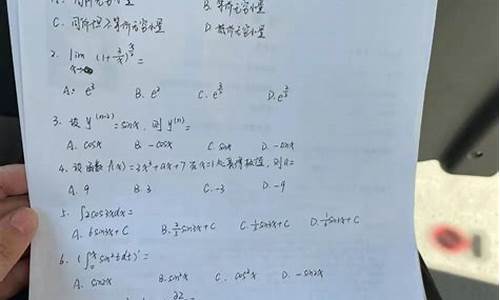 A. 同阶无穷小量 B. 等价无穷小量
C. 同阶但不等价无穷小量 D.
2. lim x→∞ (1+2/x)
A. e³ B. e² C. D.
3. 设 y⁽ⁿ⁻²⁾ = sinx, 则 y⁽ⁿ⁾ =
A. cosx B. -cosx C. sinx D. -sinx
4. 设函数 f(x) = 2x³+ax+7 在x=1处取得极值, 则a=
A. 9 B. 3 C. -3 D.
5. ∫2cos3xdx=
A. 6sin3x+C B. 2/3 sin3x+C C. sin3x+C D. sin3x+C
6. (∫₀ˣ sin²tdt)' =
A. sin2x B. sin²x C. cos²x D. -sin2x